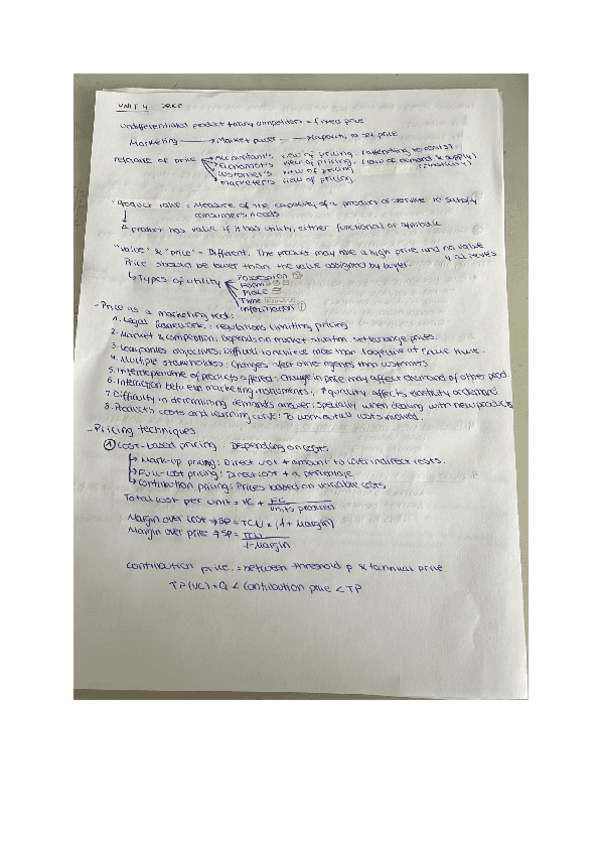 UNIT 4 PRICE
undifferentiated product + many competitors = fixed price
Marketing → Market power → capacity to set price
relevance of price
Accountants view of pricing. (attending to costs).
Economists view of pricing. (law of demand & supply)
Consumer's view of pricing
marketers view of pricing.
(elasticity)
Product value = Measure of the capacity of a product or service to satisfy
consumers needs
A product has value if it has utility, either functional or symbolic
"value" & "price" = different. The product may have a high price and no value
Price should be lower than the value assigned by buyer.
y al revés
↳ Types of utility
Possession
Form
Place
Time
Information
- Price as a marketing tool:
1. Legal framework: regulations limiting pricing
2. Market & competition: Depends on market situation. set/change prices.
3. Companies objectives: difficult to achieve more than together at same time.
4. Multiple stakeholders: Changes affect other agents than customers
5. Interdependence of products offered: Change in price may affect demand of other prod.
6. Interaction between marketing instruments: ↑ quality affects elasticity of demand
7. Difficulty in determining demand's answer: Specially when dealing with new products
8. Products costs and learning curve: To work out all costs involved.
- Pricing techniques
① Cost-based pricing: Depending on costs
Mark-up pricing: Direct cost + amount to cover indirect costs.
Full-cost pricing: Direct cost + a percentage
Contribution pricing: Prices based on variable costs
Total cost per unit = VC + FC / units produced
Margin over cost → SP = TCu × (1 + Margin)
Margin over price → SP = TCu / 1-Margin
contribution price = between threshold p & technical price
TP(VC) = Q < Contribution price < TP